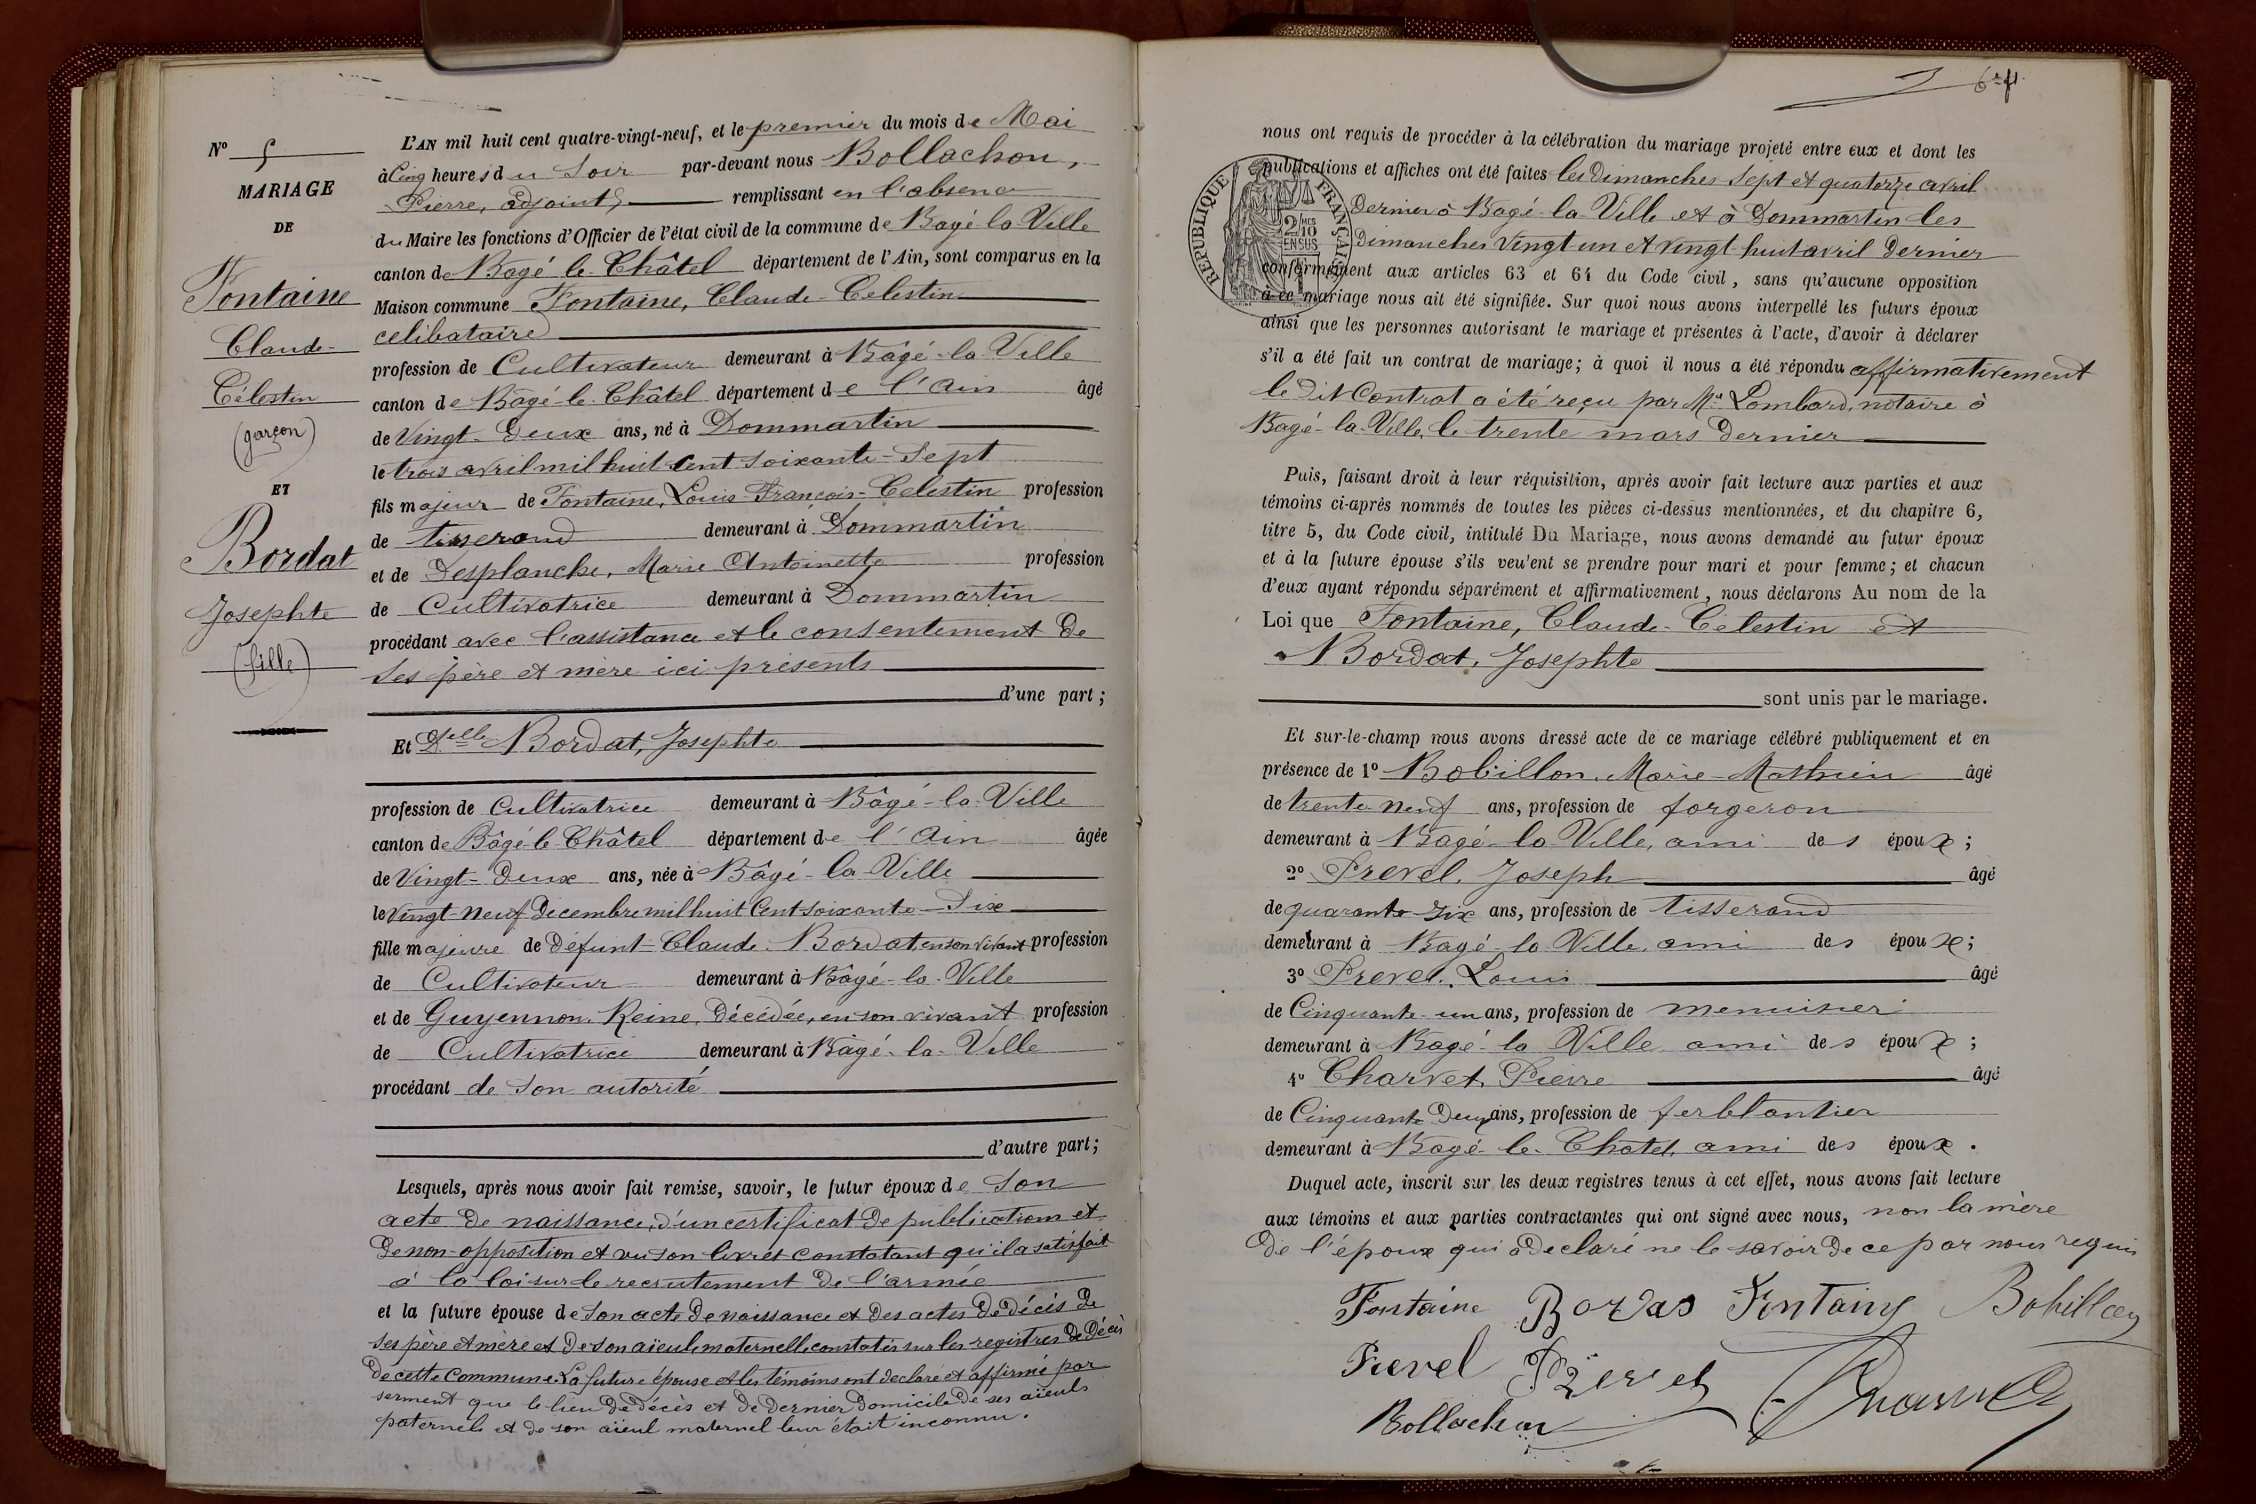 N° 5
MARIAGE
DE
Fontaine
Claude-
Célestin
(garçon)
ET
Bordat
Josephte
(fille)
L'AN mil huit cent quatre-vingt-neuf, et le premier du mois de Mai
à Cinq heures du Soir par-devant nous Bollachon,
Pierre, adjoint, remplissant en l'absence
du Maire les fonctions d'Officier de l'état civil de la commune de Bagé-la-Ville
canton de Bagé-le-Châtel département de l'Ain, sont comparus en la
Maison commune Fontaine, Claude-Celestin
celibataire
profession de Cultivateur demeurant à Bâgé-la-Ville
canton de Bâgé-le-Châtel département de l'Ain âgé
de Vingt-Deux ans, né à Dommartin
le trois avril mil huit cent soixante-Sept
fils majeur de Fontaine, Louis-François-Celestin profession
de tisserand demeurant à Dommartin
et de Desplanche, Marie Antoinette profession
de Cultivatrice demeurant à Dommartin
procédant avec l'assistance et le consentement de
ses père et mère ici présents
d'une part ;
Et Delle Bordat, Josephte
profession de Cultivatrice demeurant à Bâgé-la-Ville
canton de Bâgé-le-Châtel département de l'Ain âgée
de Vingt-Deux ans, née à Bâgé-la-Ville
le Vingt-neuf Décembre mil huit Cent soixante-Six
fille majeure de défunt Claude Bordat en son vivant profession
de Cultivateur demeurant à Bâgé-la-Ville
et de Guyennon, Reine, Décédée, en son vivant profession
de Cultivatrice demeurant à Bâgé-la-Ville
procédant de son autorité
d'autre part ;
Lesquels, après nous avoir fait remise, savoir, le futur époux de Son
acte de naissance, d'un certificat de publication et
de non-opposition et vu son livret constatant qu'il a satisfait
à la loi sur le recrutement de l'armée
et la future épouse de Son acte de naissance et des actes de décès de
ses père et mère et de son aïeule maternelle constatés sur les registres de Décès
de cette Commune. La future épouse et les témoins ont declaré et affirmé par
serment que le lieu de décès et de dernier domicile de ses aïeuls
paternels et de son aïeul maternel leur était inconnu.
nous ont requis de procéder à la célébration du mariage projeté entre eux et dont les
publications et affiches ont été faites les Dimanches Sept et quatorze avril
Dernier à Bagé-la-Ville et à Dommartin les
Dimanches Vingt un et Vingt-huit avril Dernier
RÉPUBLIQUE FRANÇAISE
2/10
EN SUS
conformément aux articles 63 et 64 du Code civil, sans qu'aucune opposition
à ce mariage nous ait été signifiée. Sur quoi nous avons interpellé les futurs époux
ainsi que les personnes autorisant le mariage et présentes à l'acte, d'avoir à déclarer
s'il a été fait un contrat de mariage ; à quoi il nous a été répondu affirmativement
le dit Contrat a été reçu par Me Lombard, notaire à
Bagé-la-Ville, le trente mars Dernier
Puis, faisant droit à leur réquisition, après avoir fait lecture aux parties et aux
témoins ci-après nommés de toutes les pièces ci-dessus mentionnées, et du chapitre 6,
titre 5, du Code civil, intitulé Du Mariage, nous avons demandé au futur époux
et à la future épouse s'ils veulent se prendre pour mari et pour femme ; et chacun
d'eux ayant répondu séparément et affirmativement, nous déclarons Au nom de la
Loi que Fontaine, Claude-Celestin et
Bordat, Josephte
sont unis par le mariage.
Et sur-le-champ nous avons dressé acte de ce mariage célébré publiquement et en
présence de 1° Bobillon, Marie-Mathieu âgé
de trente neuf ans, profession de forgeron
demeurant à Bagé-la-Ville, ami des époux ;
2° Prevel, Joseph âgé
de quarante-six ans, profession de tisserand
demeurant à Bagé-la-Ville, ami des époux ;
3° Prevel, Louis âgé
de Cinquante-un ans, profession de menuisier
demeurant à Bagé-la-Ville ami des époux ;
4° Charvet, Pierre âgé
de Cinquante Deux ans, profession de ferblantier
demeurant à Bagé-le-Chatel, ami des époux.
Duquel acte, inscrit sur les deux registres tenus à cet effet, nous avons fait lecture
aux témoins et aux parties contractantes qui ont signé avec nous, non la mère
de l'époux qui a declaré ne le savoir de ce par nous requis
Fontaine Bordas Fontaine Bobillon
Prevel Prevel Charvet
Bollachon